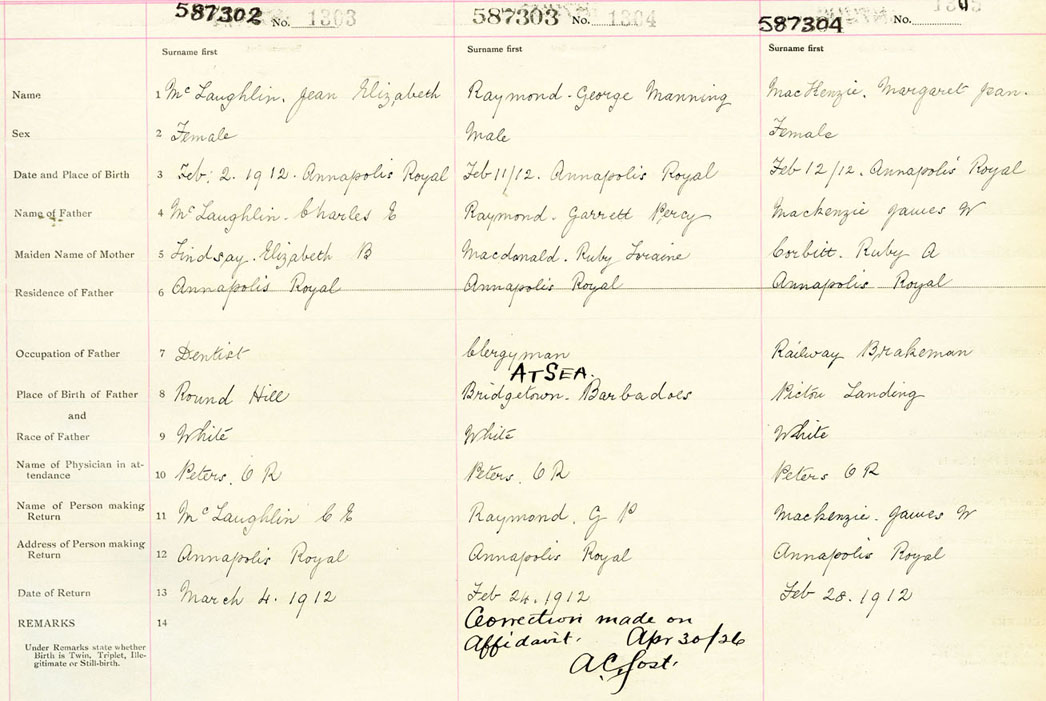 587302 No. 1303 587303 No. 1304 587304 No. 1305
Surname first Surname first Surname first
Name 1 McLaughlin, Jean Elizabeth Raymond - George Manning MacKenzie, Margaret Jean.
Sex 2 Female Male Female
Date and Place of Birth 3 Feb: 2. 1912. Annapolis Royal Feb 11/12. Annapolis Royal Feb 12/12. Annapolis Royal
Name of Father 4 McLaughlin - Charles E Raymond - Garrett Percy Mackenzie James W
Maiden Name of Mother 5 Lindsay. Elizabeth B Macdonald. Ruby Loraine Corbitt. Ruby A
Residence of Father 6 Annapolis Royal Annapolis Royal Annapolis Royal
Occupation of Father 7 Dentist Clergyman Railway Brakeman
AT SEA.
Place of Birth of Father 8 Round Hill Bridgetown. Barbadoes Pictou Landing
and
Race of Father 9 White White White
Name of Physician in at-
tendance 10 Peters, O R Peters, O R Peters O R
Name of Person making
Return 11 McLaughlin C E Raymond, G P Mackenzie - James W
Address of Person making
Return 12 Annapolis Royal Annapolis Royal Annapolis Royal
Date of Return 13 March 4. 1912 Feb 24. 1912 Feb 28. 1912
REMARKS 14 Correction made on
Affidavit. Apr 30/26
Under Remarks state whether
Birth is Twin, Triplet, Ille-
gitimate or Still-birth.